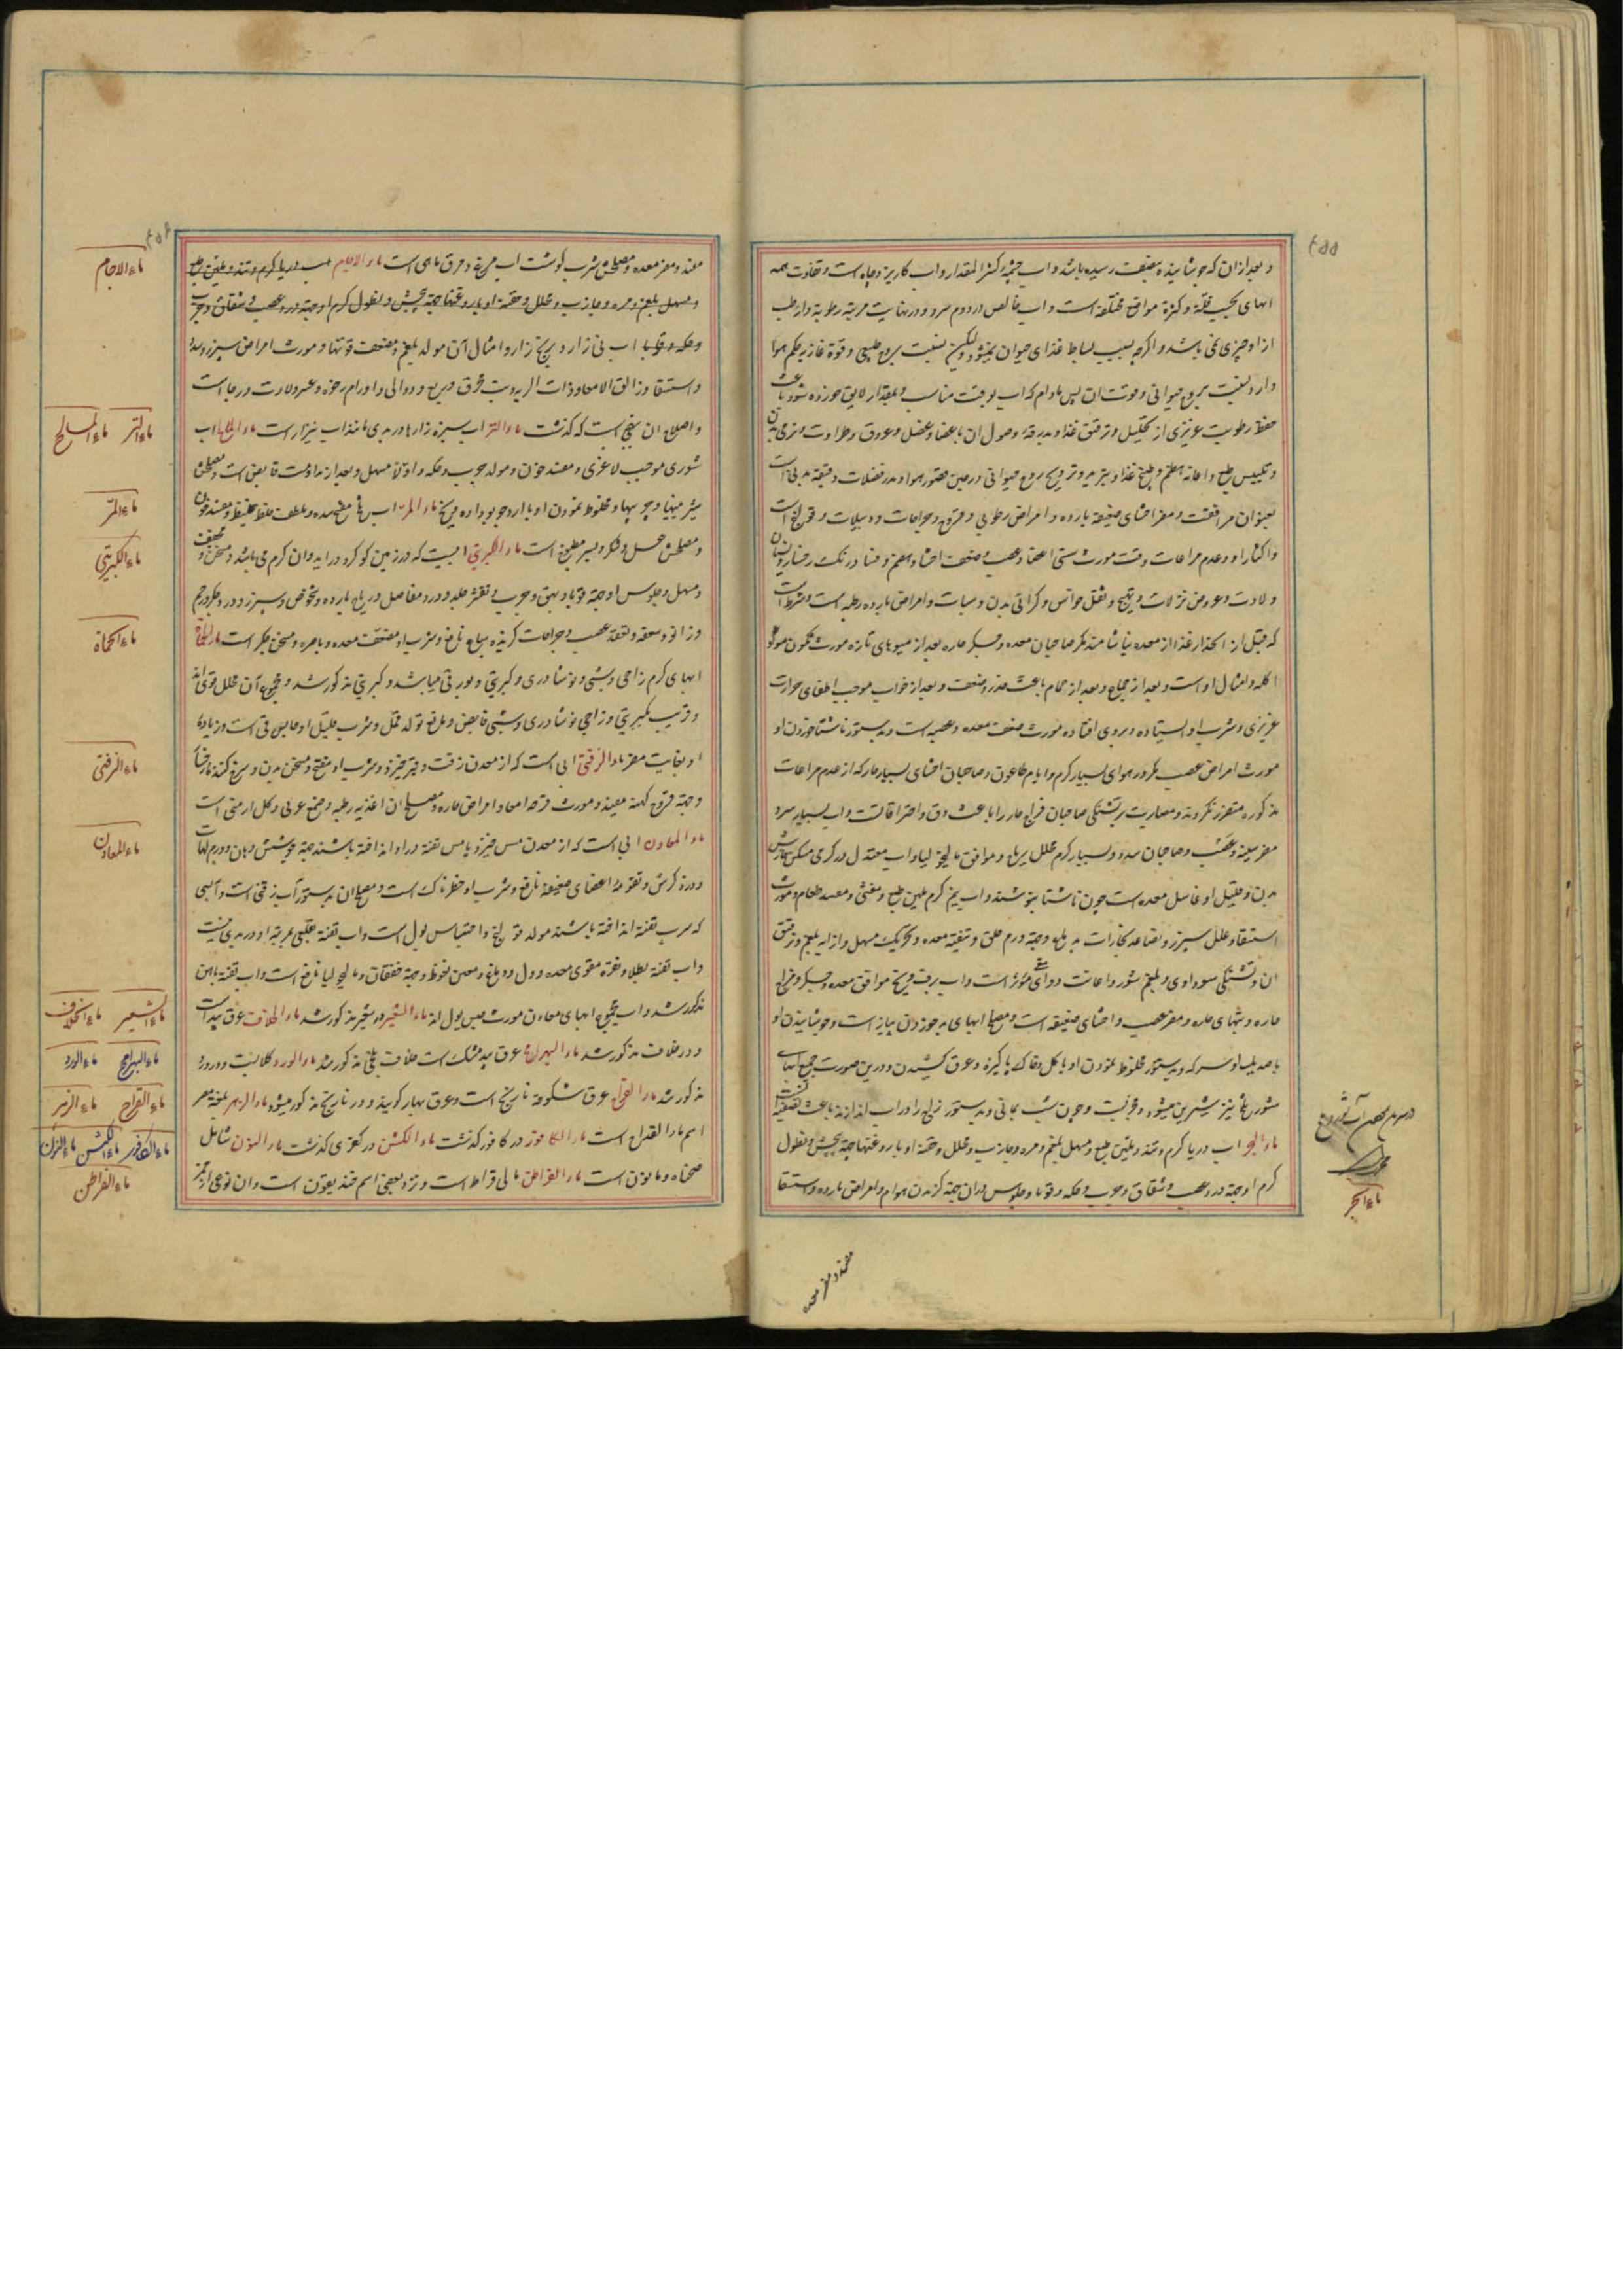 و بعد از آن که جوشانیده بنصف رسیده باشد و آب چشمه کثیر المقدار و آب کاریز و چاه است و تفاوت همه
آبهای بحسب قلة و کثرة مواضع مختلفه است و آب خالص در دوم سرد و در نهایت مرتبه رطوبة و ارطب
از او چیزی نمی باشد و اگر چه بسبب بساطة غذای حیوان نمیشود ولیکن نسبت بروح طبیعی و قوة غاذیه حکم هوا
دارد نسبت بروح حیوانی و قوت آن پس مادام که آب بوقت مناسب و بمقدار لایق خورده شود باعث
حفظ رطوبت غریزی از تحلیل و ترقیق غذا و بدرقه وصول آن باعضا و عضل و عروق و طراوت و نرمی بدن
و تلیین طبع و اعانة هضم و طبخ غذا و تبرید و ترویح روح حیوانی در حین قصور هوا و مدر فضلات دقیقه بدنی است
بعنوان مرافقت و مضر احشای ضعیفه بارده و امراض رطوبی و قروح و جراحات و دبیلات و قولنج است
و اکثار او و عدم مراعات وقت مورث سستی اعضا و عصب و ضعف احشا و هضم و فساد رنک رخسار و نسیان
و بلادت و عروض نزلات و تهیج و ثقل حواس و کرانی بدن و سبات و امراض بارده رطبه است و شرط است
که قبل از انحدار غذا از معده نیاشامند مکر صاحبان معده و جکر حاره بعد از میوهای تازه مورث تکون مواد
اکله و امثال او است و بعد از جماع و بعد از حمام باعث خدر و ضعف و بعد از خواب موجب اطفای حرارت
غریزی و شرب او ایستاده و بروی افتاده مورث ضعف معده و عصب است و بدستور ناشتا خوردن او
مورث امراض عصب مکر در هوای بسیار کرم و ایام طاعون و صاحبان احشای بسیار حار که از عدم مراعات
مذکوره متضرر نکردند و مصابرت بر تشنکی صاحبان مزاج حار را باعث دق و احتراقات و آب بسیار سرد
مضر سینه و عصب و صاحبان سده و بسیار کرم محلل ریاح و موافق مالیخولیا و آب معتدل در کرمی مسکن خارش
بدن و قلیل او غاسل معده است چون ناشتا بنوشند و آب نیم کرم ملین طبع و مغثی و مفسد طعام و مورث
استسقا و علل سپرز و تصاعد بخارات بدماغ و جهة ورم حلق و تنقیه معده و تحریک مسهل و ازاله بلغم و ترقیق
آن و تشنکی سوداوی و بلغم شور و اعانت دوای قی مؤثر است و آب برف و یخ موافق معده و جکر و مزاج
حاره و تبهای حاره و مضر عصب و احشای ضعیفه است و مصلح آبهای بد خوردن پیاز است و جوشانیدن او
شور و تلخ نیز شیرین میشود و مجربست و چون شب یمانی و بدستور
ماء البحر آب دریا کرم و تند و ملین طبع و مسهل بلغم و مره و جاذب و محلل و حقنه او با روغنها جهة پیچش و نطول
کرم او جهة درد عصب و شقاق و جرب و حکه و قوبا و جلوس در آن جهة کزیدن هوام و امراض بارده و استسقا
ماء البحر
مفید و مضر معده
مفید و مضر معده و مصلحش شرب کوشت آب مرغ و مرق ماهی است ماء الاجام آب دریا کرم و تند و ملین طبع
و مسهل بلغم و مره و جاذب و محلل و حقنه او با روغنها جهة پیچش و نطول کرم او جهة درد عصب و شقاق و جرب
و حکه و قوبا آب نی زار و برنج زار و امثال آن مولد بلغم و مضعف قوتها و مورث امراض سپرز و سده
و استسقا و زلق الامعا و ذات الریه و تب محرق و ربع و دوالی و اورام رخوه و عسر ولادت و رجا است
و اصلاح آن بنحوی است که کذشت ماء النز آب سبزه زارها در بدی مانند آب نیزار است ماء المالح آب
شوری موجب لاغری و مفسد خون و مولد جرب و حکه و اولا مسهل و بعد از مداومت قابض است و مصلحش
شیرینیها و چربیها و مخلوط نمودن او با آرد جو بو داده و یخ ماء المر آب تلخ مفتح سده و ملطف خلط غلیظ و مفسد خون
و مصلحش عسل و شکر و سیر مطبوخ است ماء الکبریتی آبیست که در زمین کوکرد در آید و آن کرم می باشد و مسخن و مجفف
و مسهل و جلوس او جهة قوبا و بهق و جرب و تقشر جلد و درد مفاصل و ریاح بارده
و زانو و سعفه و تعقد عصب و جراحات کزیده سباع نافع و شرب او مضعف معده و باصره و مسخن جکر است ماء الحماة
آبهای کرم زاجی و شبی و نوشادری و کبریتی و بورقی میباشد و کبریتی مذکور شد و مجموع آن محلل قوی اند
و قریب بکبریتی و زاجی و نوشادری و شبی قابض و مانع تولد قمل و شرب قلیل او حابس قی است و زیاده
او بغایت مضر ماء الزفتی آبی است که از معدن زفت و قیر خیزد و شرب او مفتح و مسخن بدن
و جهة قروح کهنه مفید و مورث قرحه امعا و امراض حاره و مصلح آن اغذیه رطبه و صمغ عربی و کل ارمنی است
ماء المعادن آبی است که از معدن مس خیزد یا مس تفته در او انداخته باشند جهة جوشش دهان و ورم لهات
و درد کوش و تقویة اعضای ضعیفه نافع و شرب او خطرناک است و مصلح آن بدستور آب زفتی است و آبی
که سرب تفته انداخته باشند مولد قولنج و احتباس بول است و آب تفته قلعی بمرتبه او در بدی نیست
و آب تفته بطلا و نقره مقوی معده و دل و دماغ و معین نعوظ و جهة خفقان و مالیخولیا نافع است و آب تفته بآهن
مذکور شد و آب مجموع آبهای معادن مورث حبس بول اند ماء الشعیر در شعیر مذکور شد ماء الخلاف عرق بید است
و در خلاف مذکور شد ماء البهرامج عرق بید مشک است و در خلاف بلخی مذکور شد ماء الورد کلابست و در ورد
مذکور شد ماء القداح عرق شکوفه نارنج است و عرق بهار کویند و در نارنج مذکور میشود ماء الزهر بلغة مصر
اسم ماء القداح است ماء الکافور در کافور کذشت ماء الکشن در کعری کذشت ماء النون شامل
صحناه و مانون است ماء القراطن مالی قراط است و نزد بعضی اسم خندیقون است و آن نوعی از خمر
ماء الاجام
ماء النز ماء المالح
ماء المر
ماء الکبریتی
ماء الحماة
ماء الزفتی
ماء المعادن
ماء الشعیر ماء الخلاف
ماء البهرامج ماء الورد
ماء القداح ماء الزهر
ماء الکافور ماء الکشن ماء النون
ماء القراطن